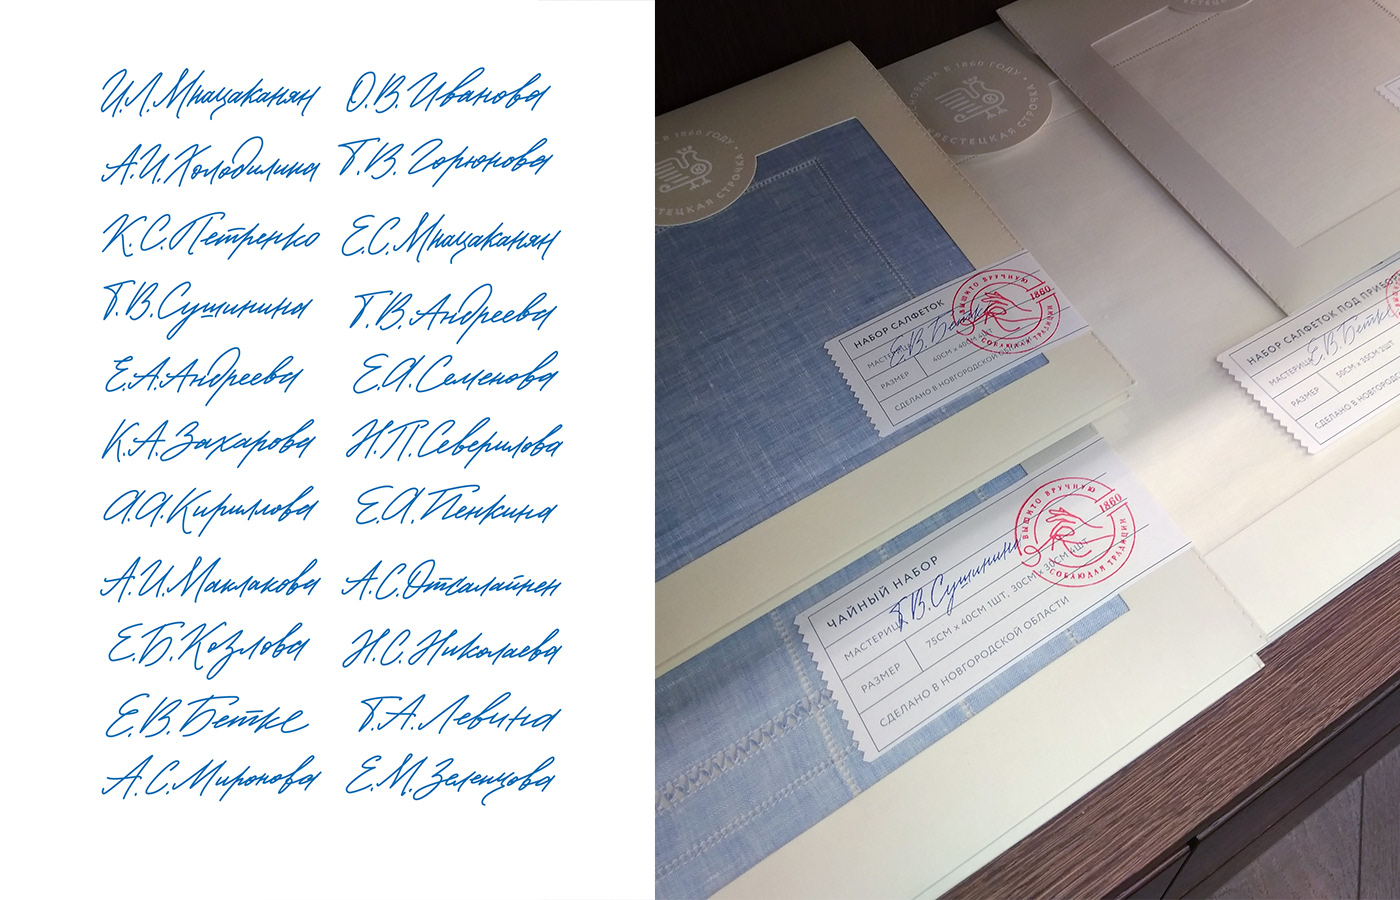 И.Л.Мнацаканян
О.В.Иванова
А.И.Холодилина
Т.В.Горюнова
К.С.Петренко
Е.С.Мнацаканян
Т.В.Сушинина
Т.В.Андреева
Е.А.Андреева
Е.А.Семенова
К.А.Захарова
Н.П.Северилова
А.А.Кириллова
Е.А.Пенкина
А.И.Маклакова
А.С.Отсалайнен
Е.Б.Козлова
Н.С.Николаева
Е.В.Бетке
Т.А.Левина
А.С.Миронова
Е.М.Зеленцова
В 1860 ГОДУ •
ТЕЦКАЯ СТРОЧКА
НОВАНА В 1860 ГОДУ •
РЕСТЕЦКАЯ СТРОЧКА
НАБОР САЛФЕТОК
МАСТЕРИЦА Е.В.Бетке
РАЗМЕР 40СМ х 40СМ
СДЕЛАНО В НОВГОРОДСКОЙ
ВЫШИТО ВРУЧНУЮ
1860
СОБЛЮДАЯ ТРАДИЦИИ
НАБОР САЛФЕТОК ПОД ПРИБОР
МАСТЕРИЦА Е.В.Бетке
РАЗМЕР 50СМ х 35СМ 2ШТ
СДЕЛАНО В НОВГОРОДСК
ЧАЙНЫЙ НАБОР
МАСТЕРИЦА Т.В.Сушинина
РАЗМЕР 75СМ х 40СМ 1ШТ, 30СМ х 30СМ 4ШТ
СДЕЛАНО В НОВГОРОДСКОЙ ОБЛАСТИ
ВЫШИТО ВРУЧНУЮ
1860
СОБЛЮДАЯ ТРАДИЦИИ